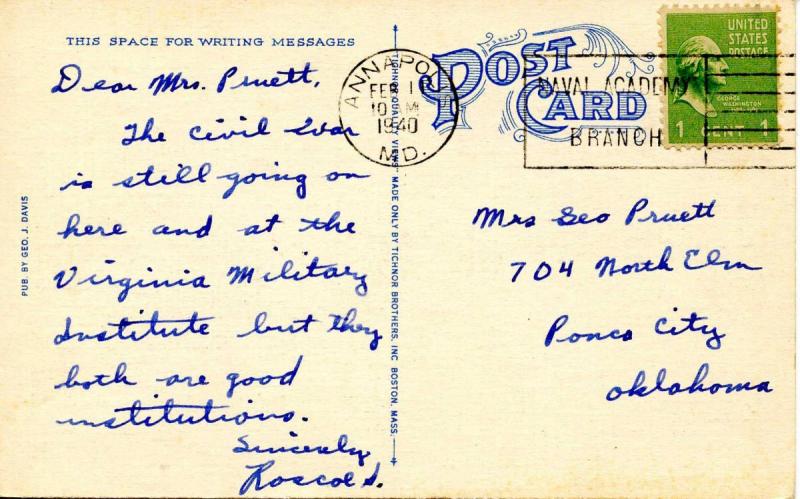 THIS SPACE FOR WRITING MESSAGES
Dear Mrs. Pruett,
The Civil War
is still going on
here and at the
Virginia Military
Institute but they
both are good
institutions.
Sincerely
Roscoe S.
PUB. BY GEO. J. DAVIS
"TICHNOR QUALITY VIEWS" MADE ONLY BY TICHNOR BROTHERS, INC. BOSTON, MASS.
POST
CARD
ANNAPOLIS
FEB 1
10 M
1940
MD.
NAVAL ACADEMY
BRANCH
UNITED
STATES
POSTAGE
GEORGE
WASHINGTON
1 CENT 1
Mrs Geo Pruett
704 North Elm
Ponca City
Oklahoma